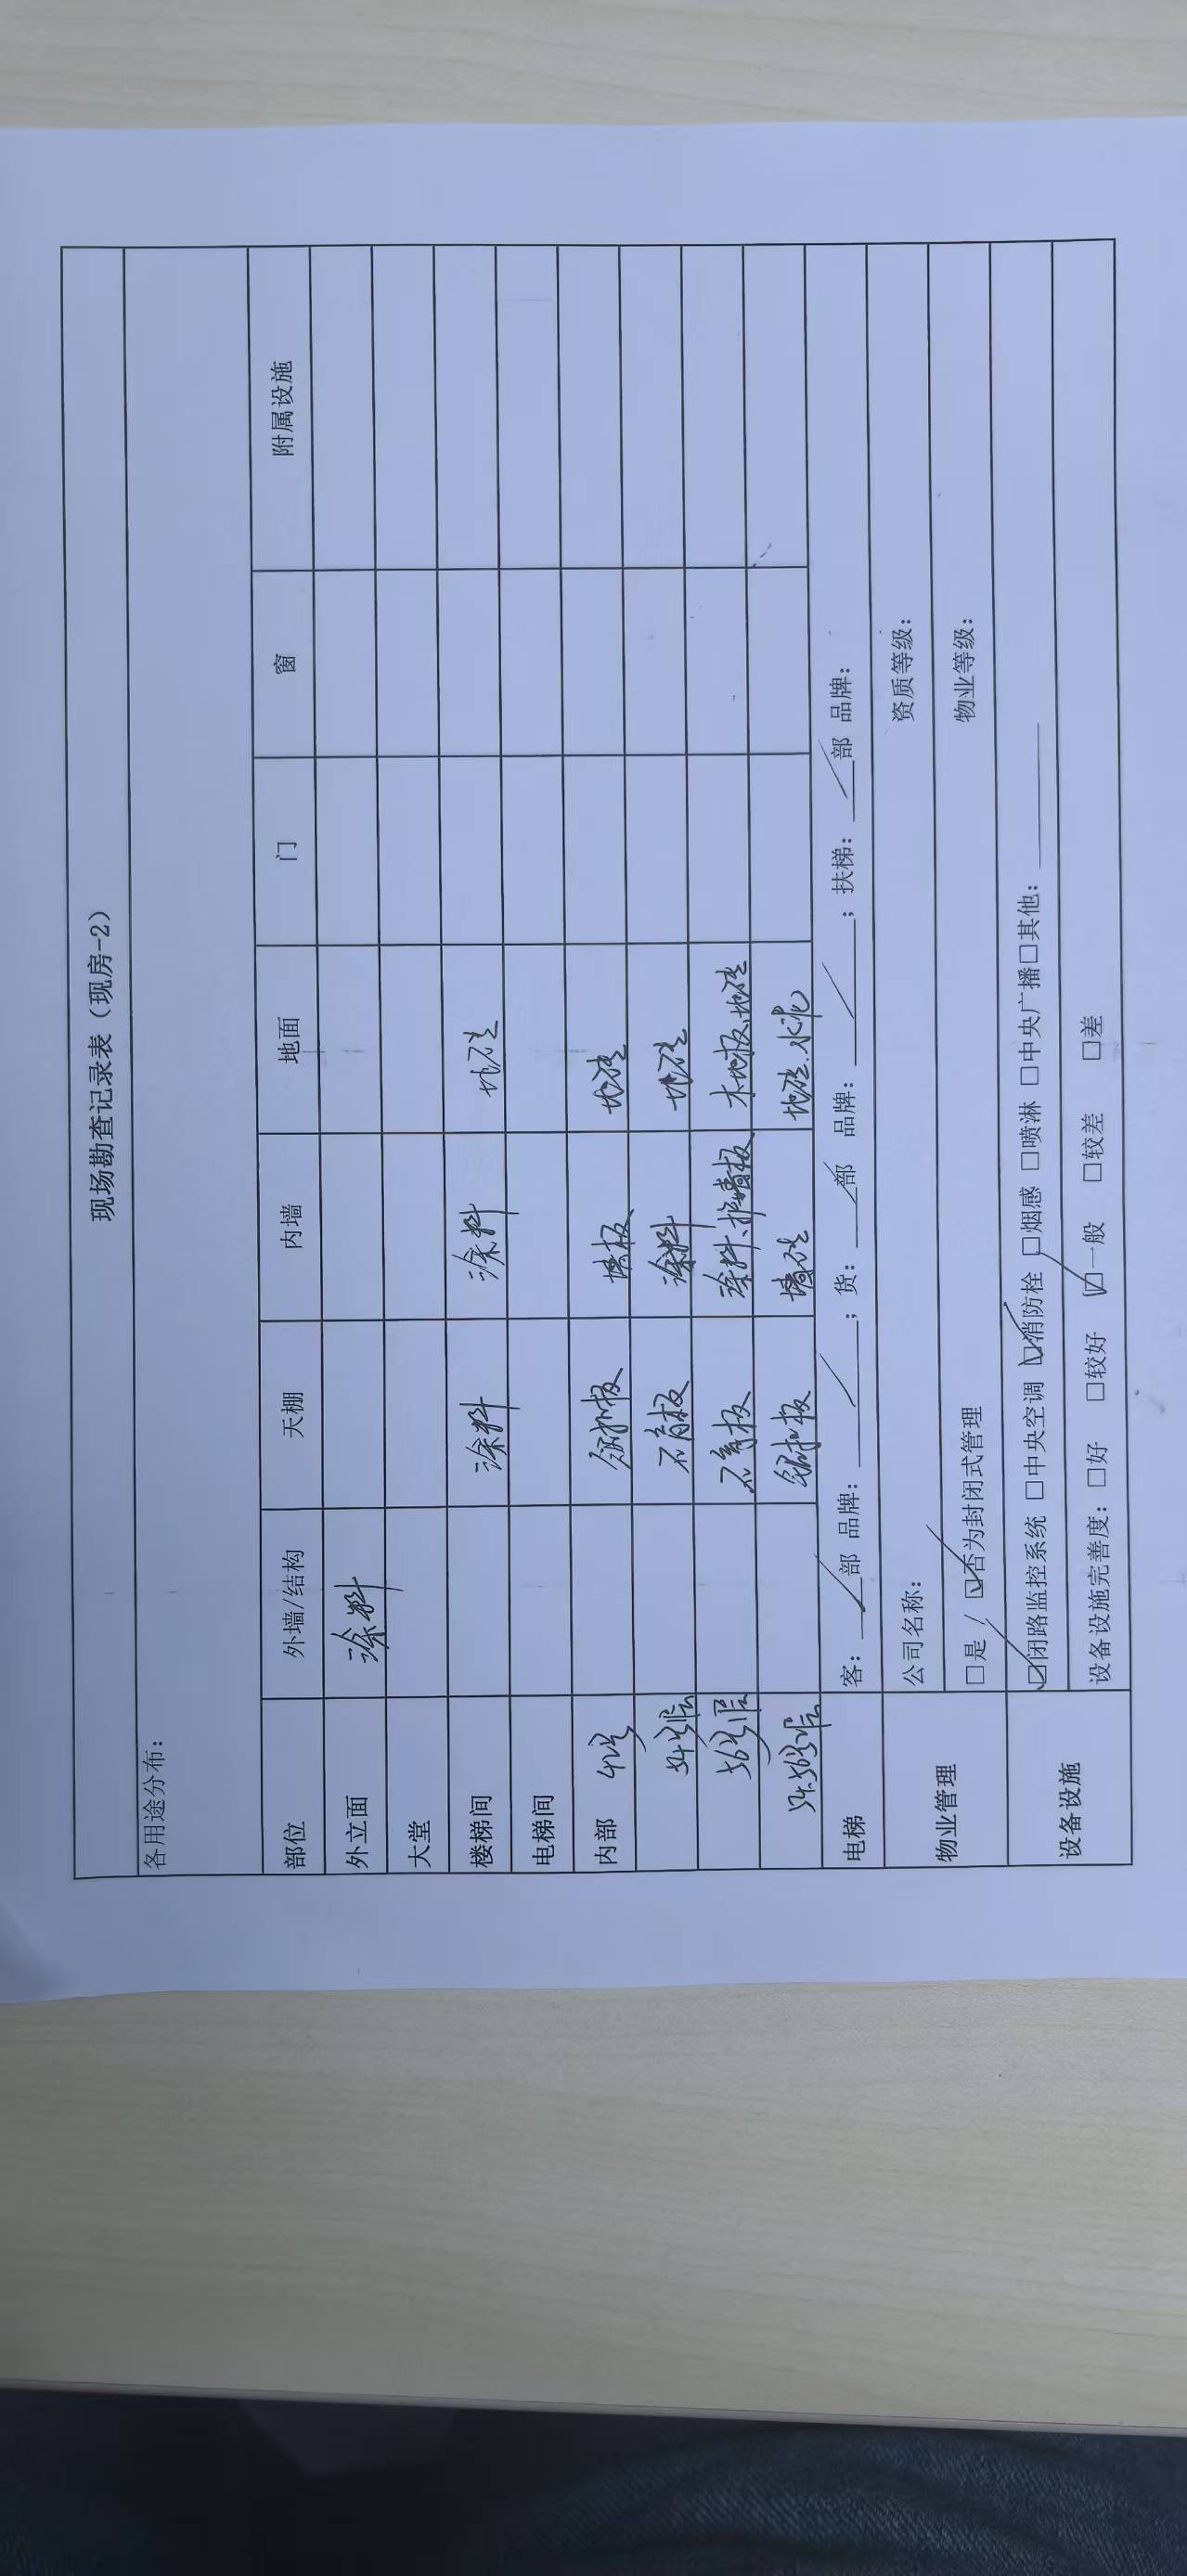 现场勘查记录表（现房-2）
各用途分布：
部位 外墙/结构 天棚 内墙 地面 门 窗 附属设施
外立面 涂料
大堂
楼梯间 涂料 涂料 地砖
电梯间
内部 42号 铝扣板 墙板 地砖
54号1层 石膏板 涂料 地砖
56号1层 石膏板 涂料、护墙板 木地板、地砖
54.56号2层 铝扣板 墙砖 地砖.水泥
电梯 客： 部 品牌： ；货： 部 品牌： ；扶梯： 部 品牌：
物业管理 公司名称： 资质等级：
□是 / ☑否为封闭式管理 物业等级：
设备设施 ☑闭路监控系统 □中央空调 ☑消防栓 □烟感 □喷淋 □中央广播□其他：
设备设施完善度：□好 □较好 ☑一般 □较差 □差